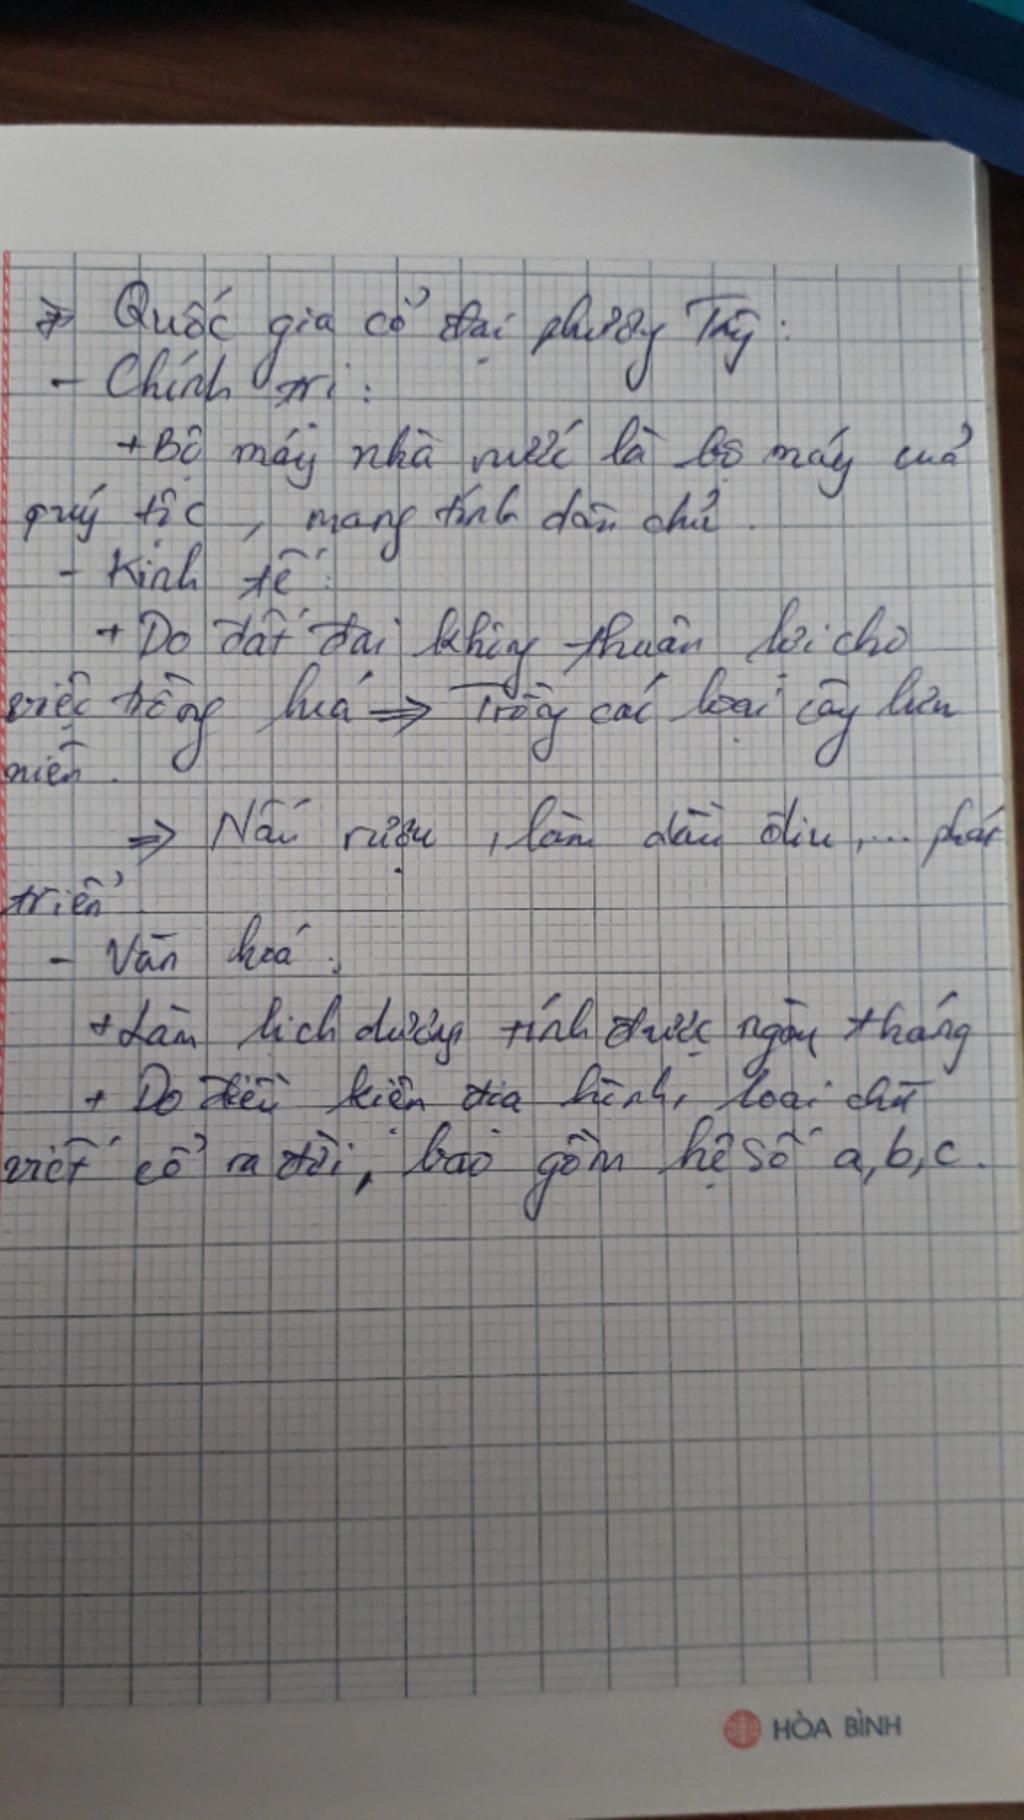 * Quốc gia cổ đại phương Tây:
- Chính trị:
+ Bộ máy nhà nước là bộ máy của
quý tộc, mang tính dân chủ.
- Kinh tế:
+ Do đất đai không thuận lợi cho
việc trồng lúa => Trồng các loại cây lưu
niên.
=> Nấu rượu, làm dầu ôliu,... phát
triển.
- Văn hoá:
+ Làm lịch dương, tính được ngày tháng
+ Do điều kiện địa hình, loại chữ
viết cổ ra đời, bao gồm hệ số a,b,c.
HÒA BÌNH